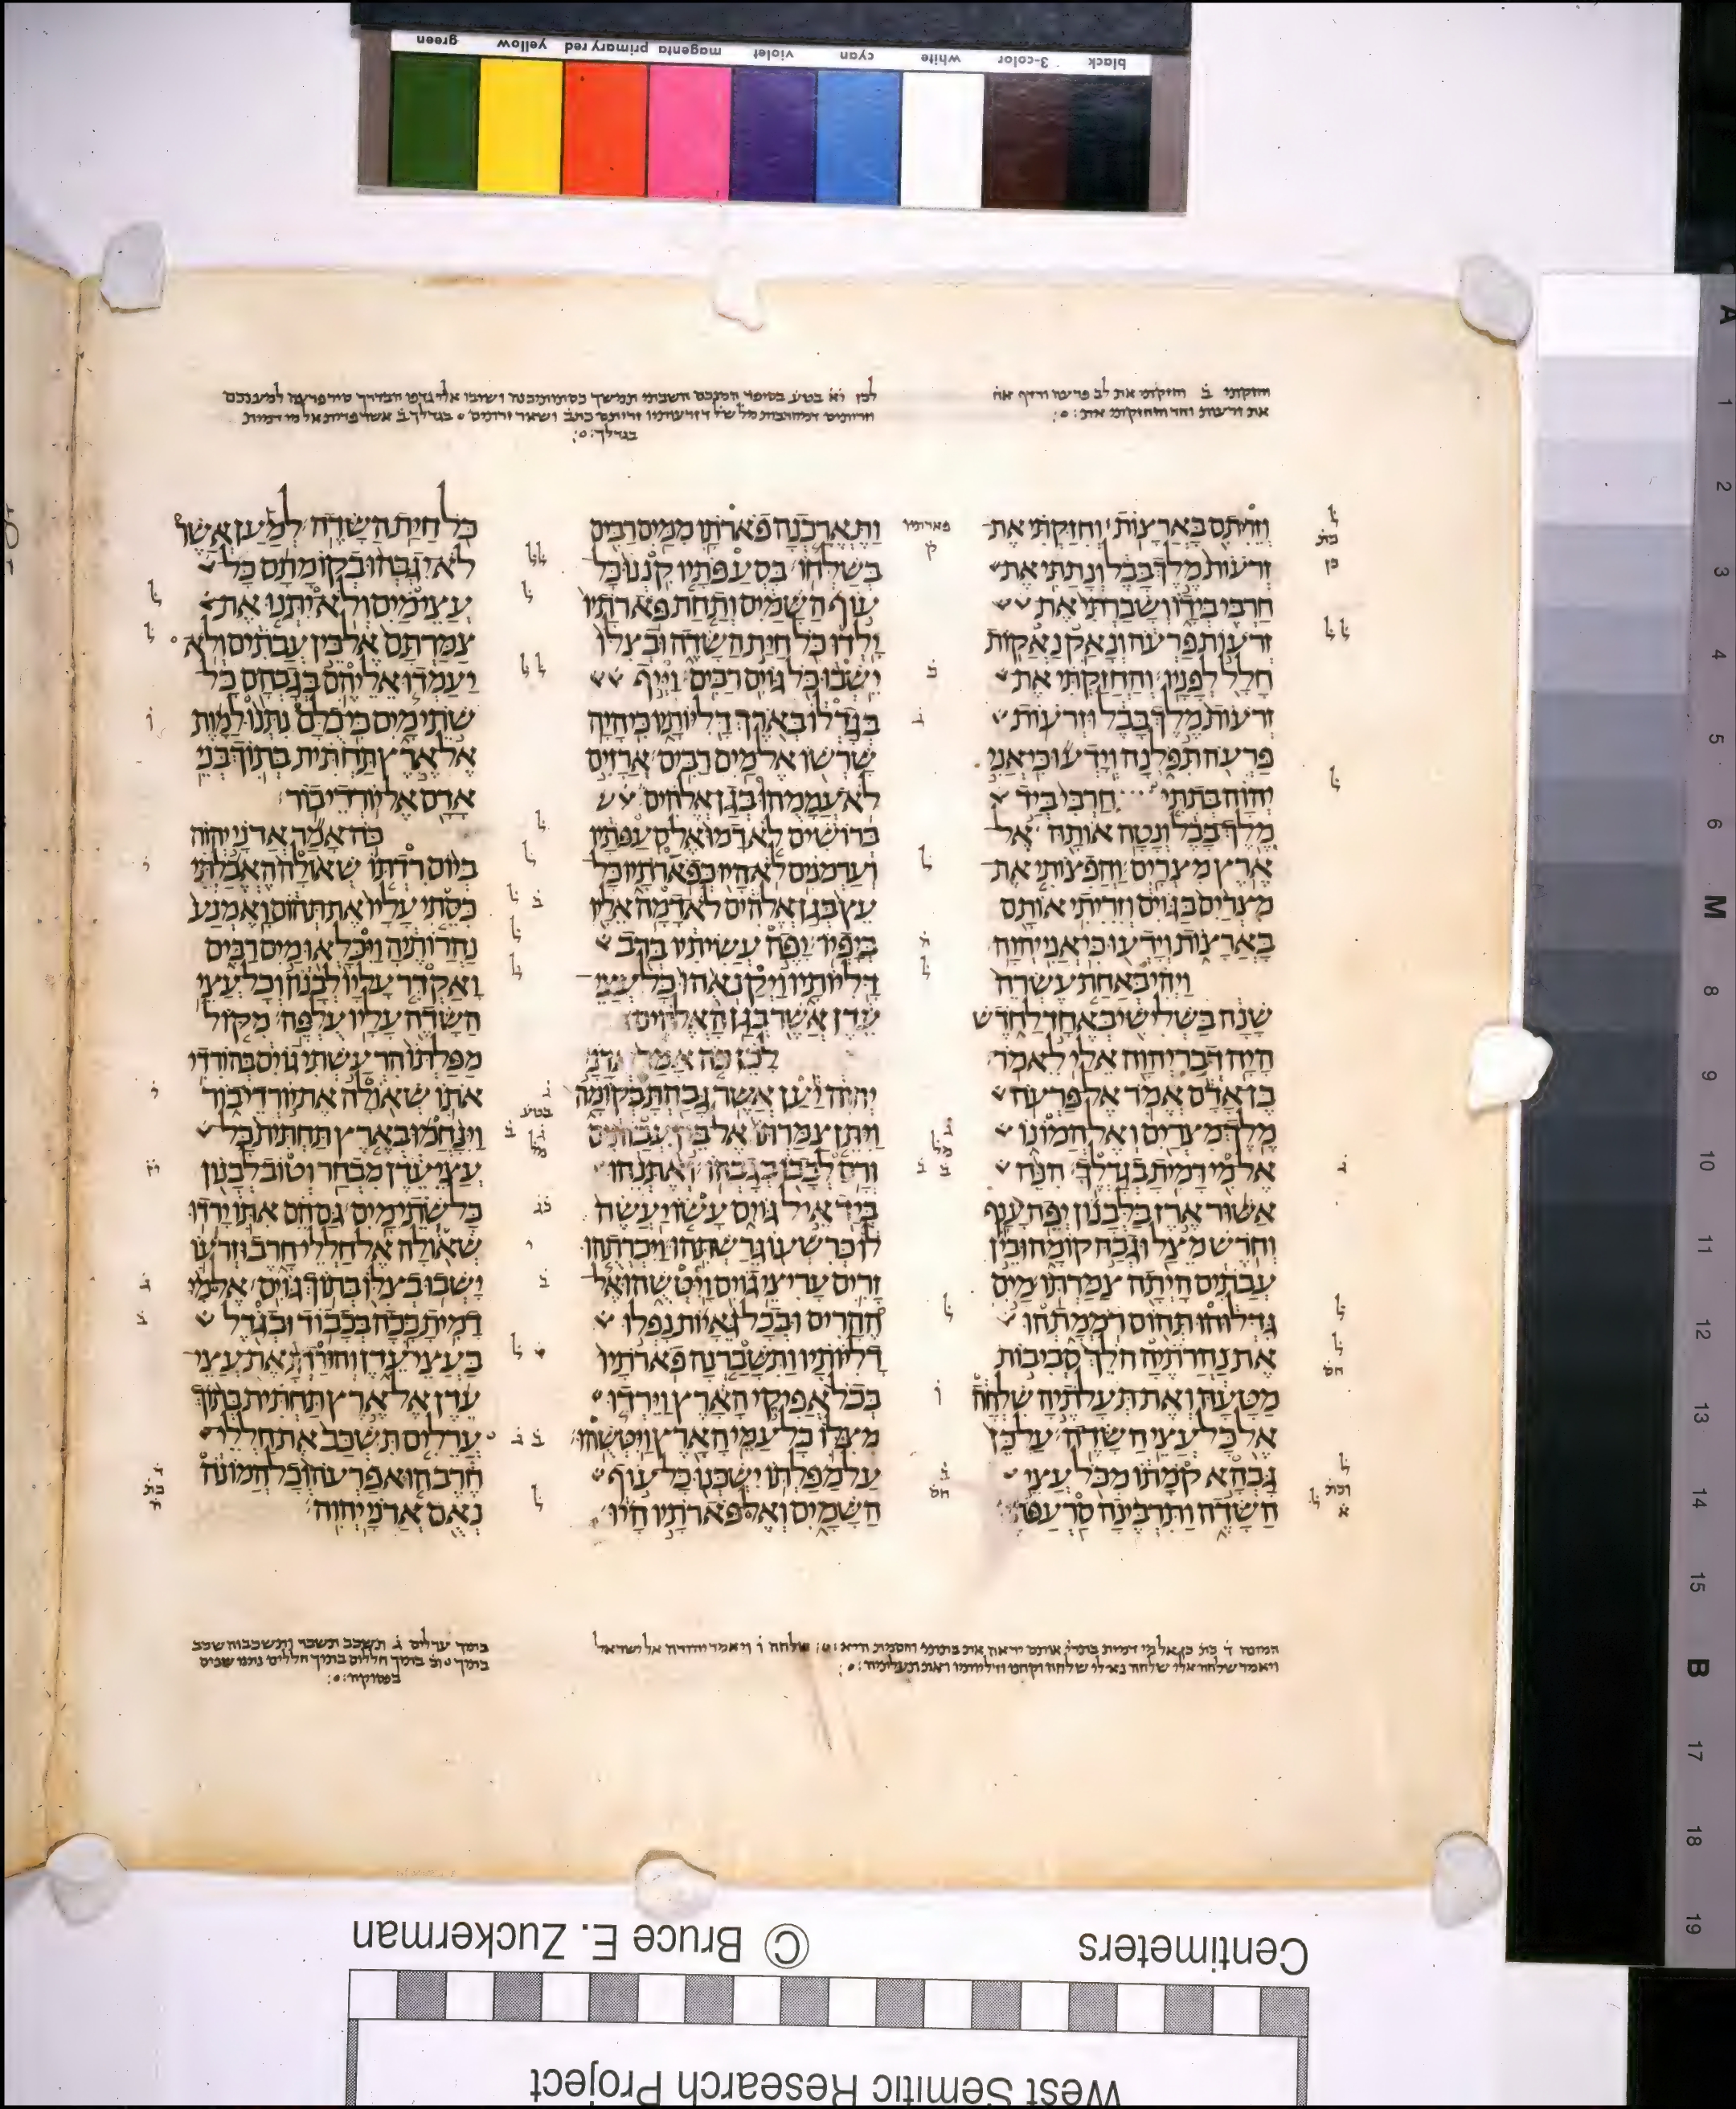 green yellow primary red magenta violet cyan white 3-color black
וזריתם בארצות וחזקתי את
זרעות מלך בבל ונתתי את
חרבי בידו ושברתי את
זרעות פרעה ונאק נאקות
חלל לפניו והחזקתי את
זרעות מלך בבל וזרעות
פרעה תפלנה וידעו כי אני
יהוה בתתי חרבי ביד
מלך בבל ונטה אותה אל
ארץ מצרים והפצותי את
מצרים בגוים וזריתי אותם
בארצות וידעו כי אני יהוה
ויהי באחת עשרה
שנה בשלישי באחד לחדש
היה דבר יהוה אלי לאמר
בן אדם אמר אל פרעה
מלך מצרים ואל המונו
אל מי דמית בגדלך הנה
אשור ארז בלבנון יפה ענף
וחרש מצל וגבה קומה ובין
עבתים היתה צמרתו מים
גדלוהו תהום רממתהו
את נהרתיה הלך סביבות
מטעה ואת תעלתיה שלחה
אל כל עצי השדה על כן
גבהא קמתו מכל עצי
השדה ותרבינה סרעפתיו
ותארכנה פארתו ממים רבים
בשלחו בסעפתיו קננו כל
עוף השמים ותחת פארתיו
ילדו כל חית השדה ובצלו
ישבו כל גוים רבים וייף
בגדלו בארך דליותיו כי היה
שרשו אל מים רבים ארזים
לא עממהו בגן אלהים
ברושים לא דמו אל סעפתיו
וערמנים לא היו כפארתיו כל
עץ בגן אלהים לא דמה אליו
ביפיו יפה עשיתיו ברב
דליותיו ויקנאהו כל עצי
עדן אשר בגן האלהים
לכן כה אמר אדני
יהוה יען אשר גבהת בקומה
ויתן צמרתו אל בין עבותים
ורם לבבו בגבהו ואתנהו
ביד איל גוים עשו יעשה
לו כרשעו גרשתהו ויכרתהו
זרים עריצי גוים ויטשהו אל
ההרים ובכל גאיות נפלו
דליותיו ותשברנה פארתיו
בכל אפיקי הארץ וירדו
מצלו כל עמי הארץ ויטשהו
על מפלתו ישכנו כל עוף
השמים ואל פארתיו היו
כל חית השדה למען אשר
לא יגבהו בקומתם כל
עצי מים ולא יתנו את
צמרתם אל בין עבתים ולא
יעמדו אליהם בגבהם כל
שתי מים כי כלם נתנו למות
אל ארץ תחתית בתוך בני
אדם אל יורדי בור
כה אמר אדני יהוה
ביום רדתו שאולה האבלתי
כסתי עליו את תהום ואמנע
נהרותיה ויכלאו מים רבים
ואקדר עליו לבנון וכל עצי
השדה עליו עלפה מקול
מפלתו הרעשתי גוים בהורדי
אתו שאולה את יורדי בור
וינחמו בארץ תחתית כל
עצי עדן מבחר וטוב לבנון
כל שתי מים גם הם אתו ירדו
שאולה אל חללי חרב וזרעו
ישבו בצלו בתוך גוים אל מי
דמית ככה בכבוד ובגדל
בעצי עדן והורדת את עצי
עדן אל ארץ תחתית בתוך
ערלים תשכב את חללי
חרב הוא פרעה וכל המונה
נאם אדני יהוה
Centimeters © Bruce E. Zuckerman
West Semitic Research Project
A 1 2 3 4 5 6 M 8 9 10 11 12 13 14 15 B 17 18 19